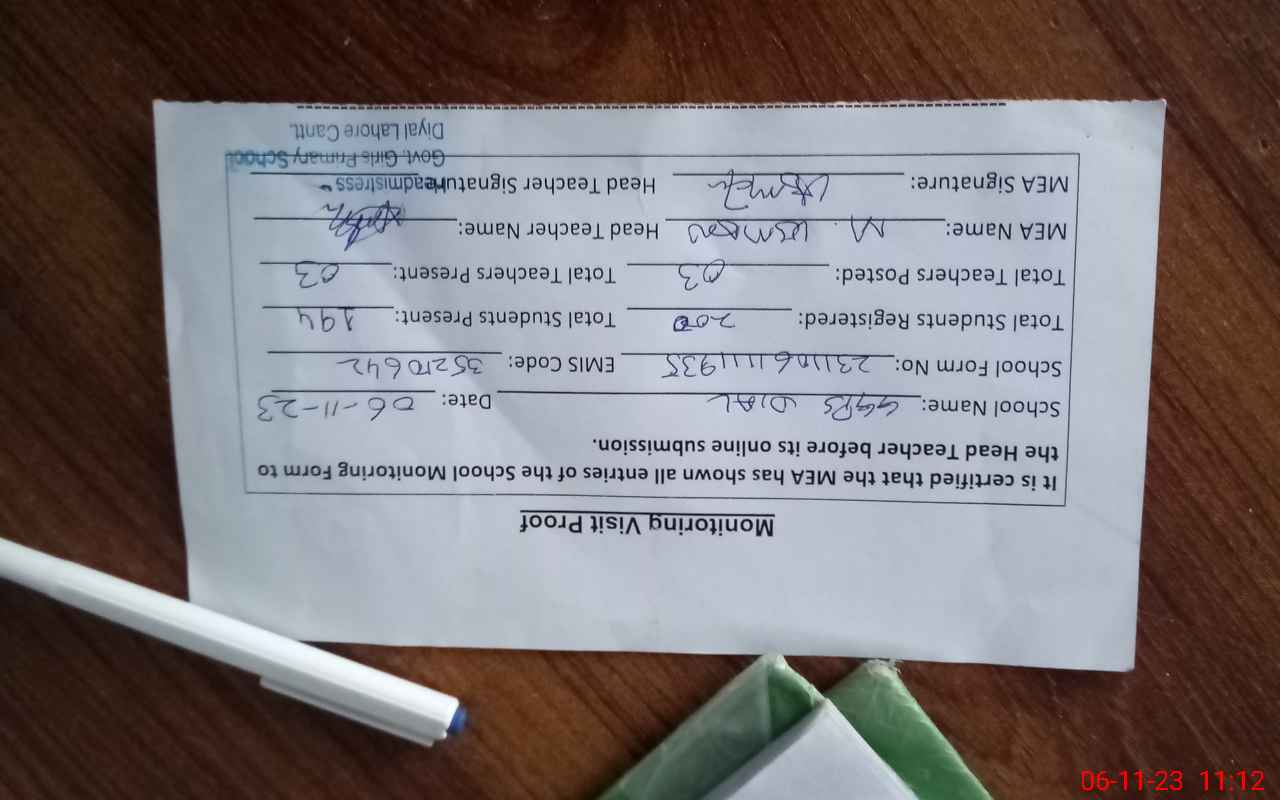 Monitoring Visit Proof
It is certified that the MEA has shown all entries of the School Monitoring Form to
the Head Teacher before its online submission.
School Name: GGPS DIAL Date: 06-11-23
School Form No: 231106111935 EMIS Code: 35210642
Total Students Registered: 200 Total Students Present: 194
Total Teachers Posted: 03 Total Teachers Present: 03
MEA Name: M. USMAN Head Teacher Name:
MEA Signature: Head Teacher Signature:
Headmistress
Govt. Girls Primary School
Diyal Lahore Cantt.
06-11-23 11:12